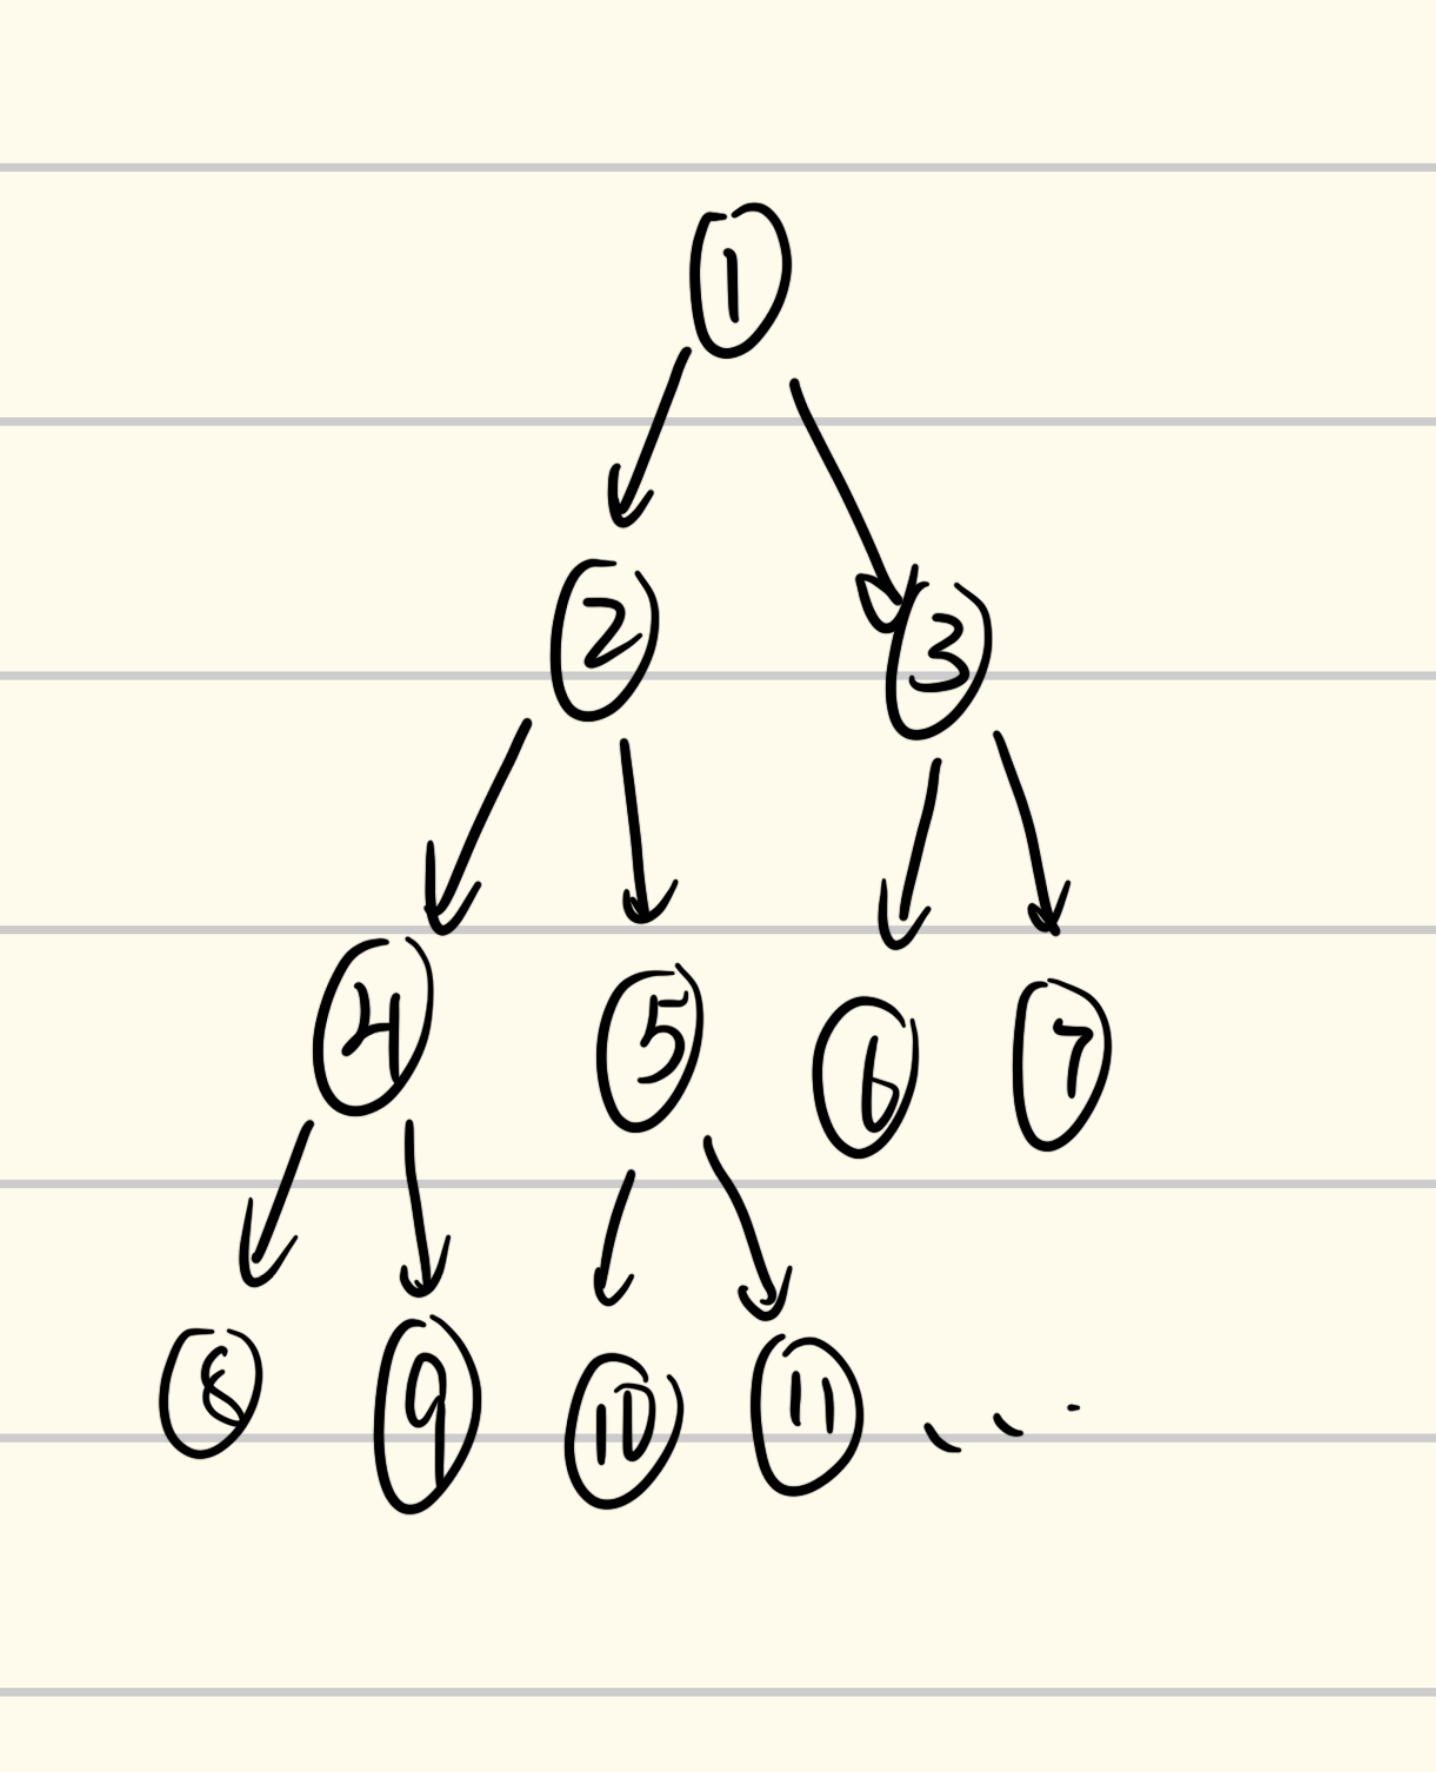 1
2 3
4 5 6 7
8 9 10 11 ...